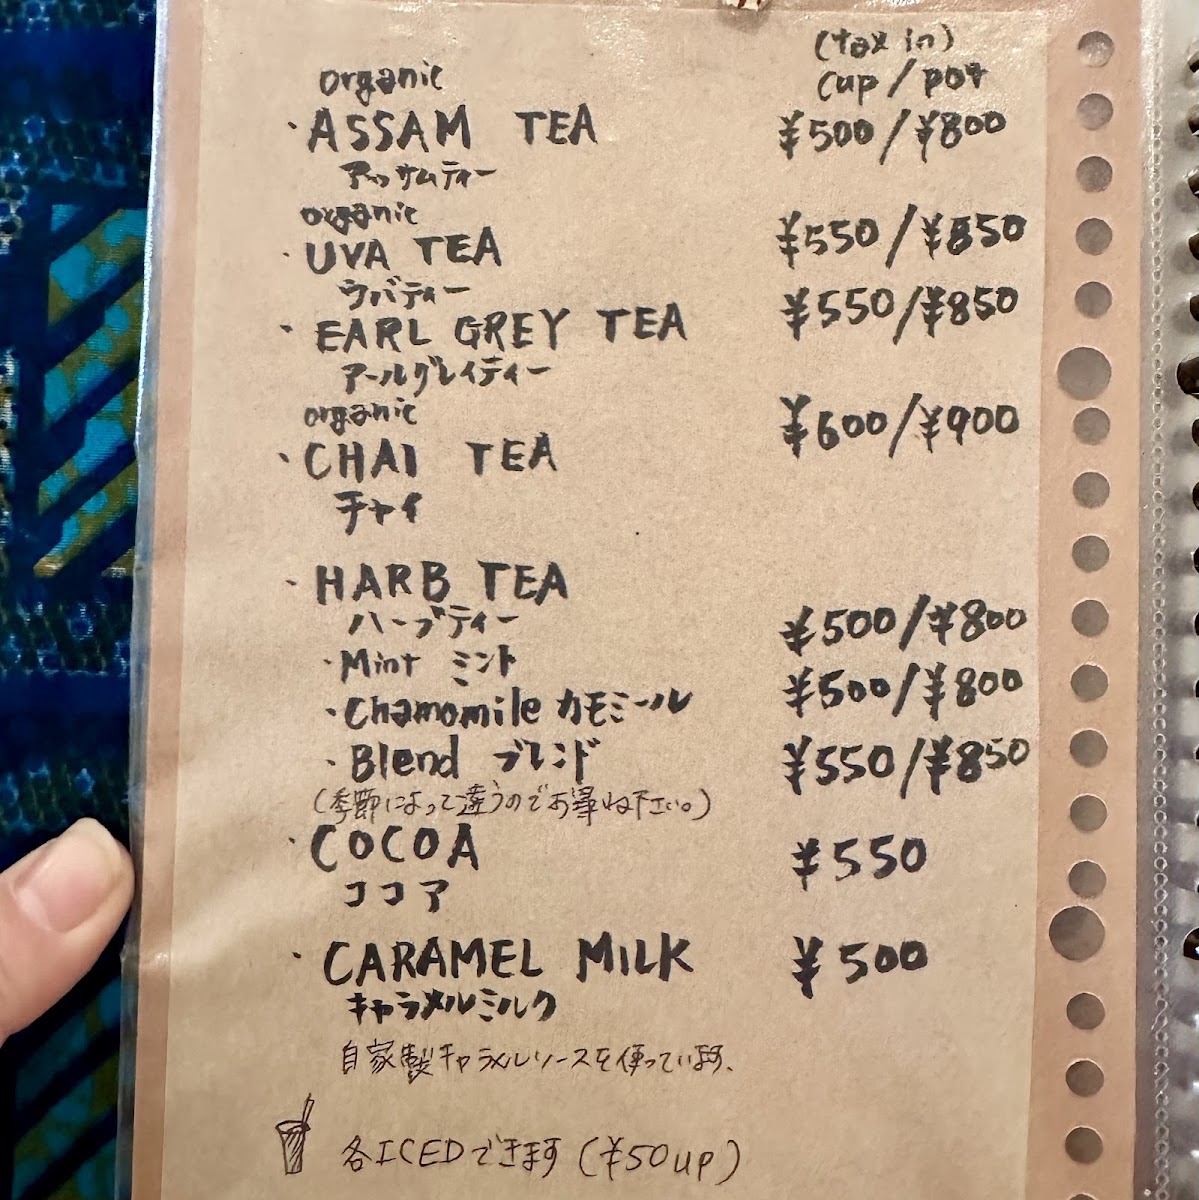 (tax in)
organic cup/pot
・ASSAM TEA ¥500/¥800
アッサムティー
organic
・UVA TEA ¥550/¥850
ウバティー
・EARL GREY TEA ¥550/¥850
アールグレイティー
organic
・CHAI TEA ¥600/¥900
チャイ
・HARB TEA
ハーブティー
・Mint ミント ¥500/¥800
・Chamomile カモミール ¥500/¥800
・Blend ブレンド ¥550/¥850
(季節によって違うのでお尋ね下さい。)
・COCOA ¥550
ココア
・CARAMEL MILK ¥500
キャラメルミルク
自家製キャラメルソースを使っています。
各ICEDできます(¥50up)